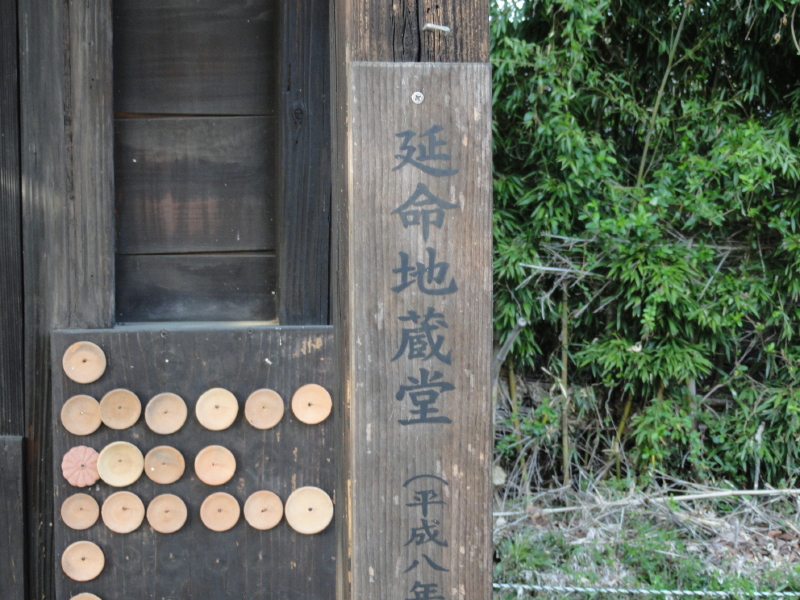 延命地蔵堂
（平成八年